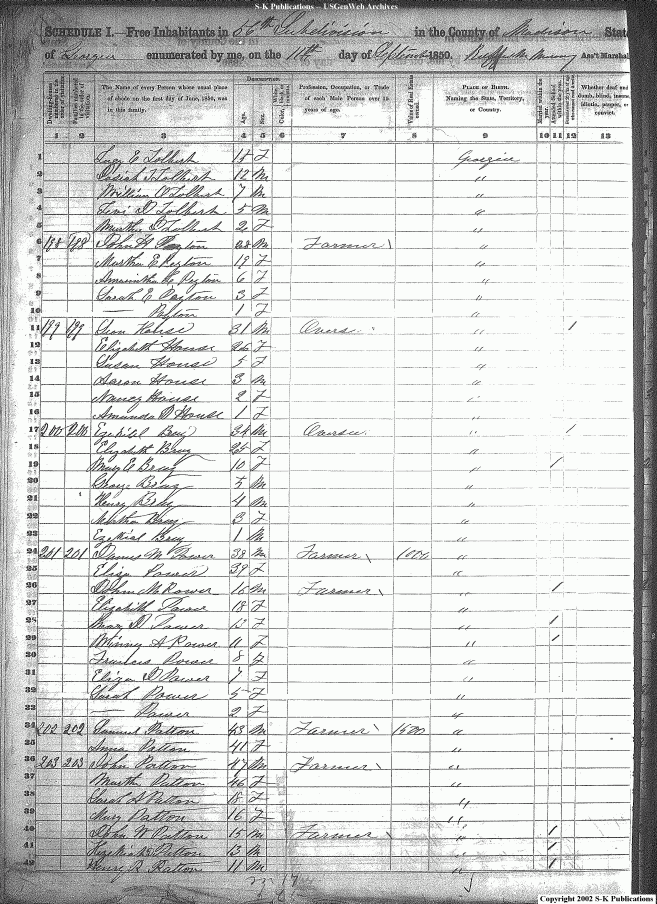 S-K Publications -- USGenWeb Archives
SCHEDULE I.—Free Inhabitants in 56th Subdivision in the County of Madison State
of Georgia enumerated by me, on the 11th day of Septemb 1850. Ass't Marshal
DESCRIPTION.
The Name of every Person whose usual place of abode on the first day of June, 1850, was in this family.
Age.
Sex.
Profession, Occupation, or Trade of each Male Person over 15 years of age.
Value of Real Estate owned.
PLACE OF BIRTH. Naming the State, Territory, or Country.
Whether deaf and dumb, blind, insane, idiotic, pauper, or convict.
1 2 3 4 5 6 7 8 9 10 11 12 13
1 Lucy E Tolbert 15 F Georgia
2 Josiah T Tolbert 12 M "
3 William O Tolbert 7 M "
4 Levi D Tolbert 5 M "
5 Martha Tolbert 2 F "
6 198 198 John H Peyton 28 M Farmer "
7 Martha E Peyton 19 F "
8 Amarintha Peyton 6 F "
9 Sarah E Peyton 3 F "
10 — Peyton 1 F "
11 199 199 House 31 M Overse "
12 Elizabeth House 26 F "
13 Susan House 5 F "
14 Aaron House 3 M "
15 Nancy House 2 F "
16 Amanda D House 1 F "
17 200 200 Ezekiel Bray 34 M Overse "
18 Elizabeth Bray 25 F "
19 Mary E Bray 10 F "
20 George Bray 5 M "
21 Henry Bray 4 M "
22 Martha Bray 3 F "
23 Ezekial Bray 1 M "
24 201 201 James W Power 38 M Farmer 1000 "
25 Eliza Power 39 F "
26 John M Power 16 M Farmer "
27 Elizabeth Power 18 F "
28 Mary D Power F "
29 Winny A Power 11 F "
30 Frances Power 8 F "
31 Eliza D Power 7 F "
32 Sarah Power 5 F "
33 — Power 2 F "
34 202 202 Samuel Patton 43 M Farmer 1500 "
35 Anna Patton 41 F "
36 203 203 John Patton 47 M Farmer "
37 Martha Patton 46 F "
38 Sarah A Patton 18 F "
39 Mary Patton 16 F "
40 John W Patton 15 M Farmer "
41 Hezekiah Patton 13 M "
42 Henry R Patton 11 M "
Copyright 2002 S-K Publications